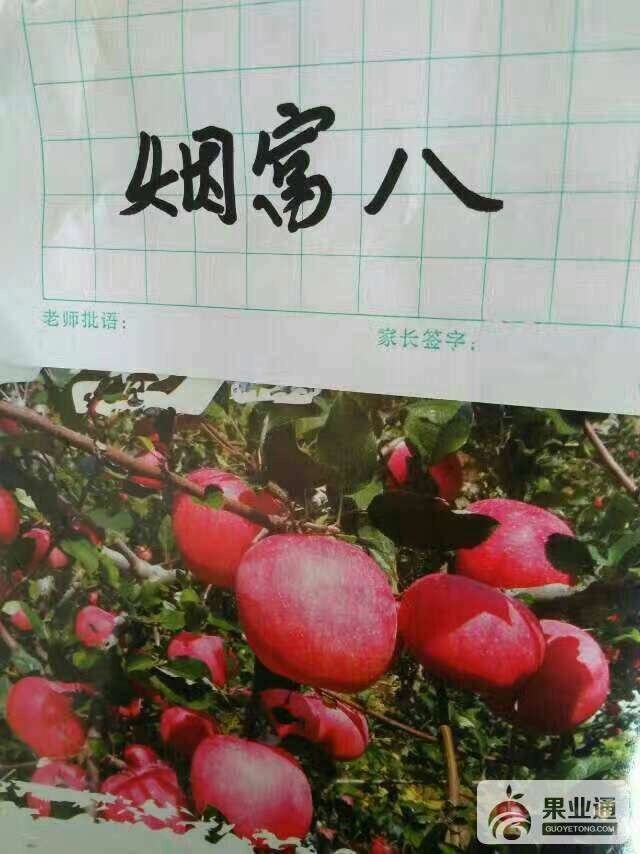 烟富八
老师批语： 家长签字：
果业通
GUOYETONG.COM